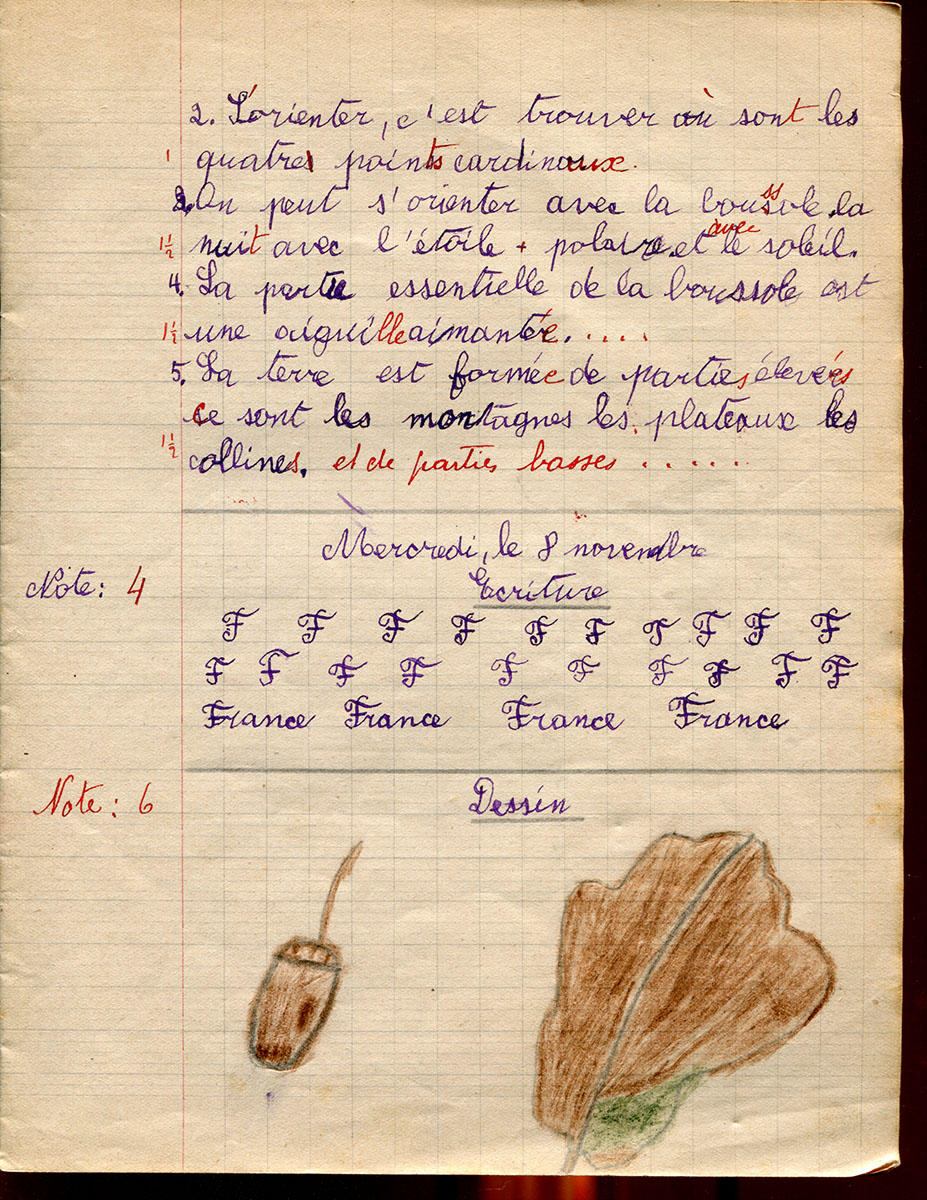 2. S'orienter, c'est trouver où sont les
1 quatres points cardinaux.
3. On peut s'orienter avec la boussole. la
ss
avec
1 1/2 nuit avec l'étoile + polaire. et le soleil.
4. La partie essentielle de la boussole est
1 1/2 une aiguille aimantée. . . . .
5. La terre est formée de parties élevées
ce sont les montagnes les plateaux les
1 1/2 collines. et de parties basses . . . . . .
Mercredi, le 8 novembre
Note: 4 Ecriture
F F F F F F F F F F
F F F F F F F F F F
France France France France
Note: 6 Dessin